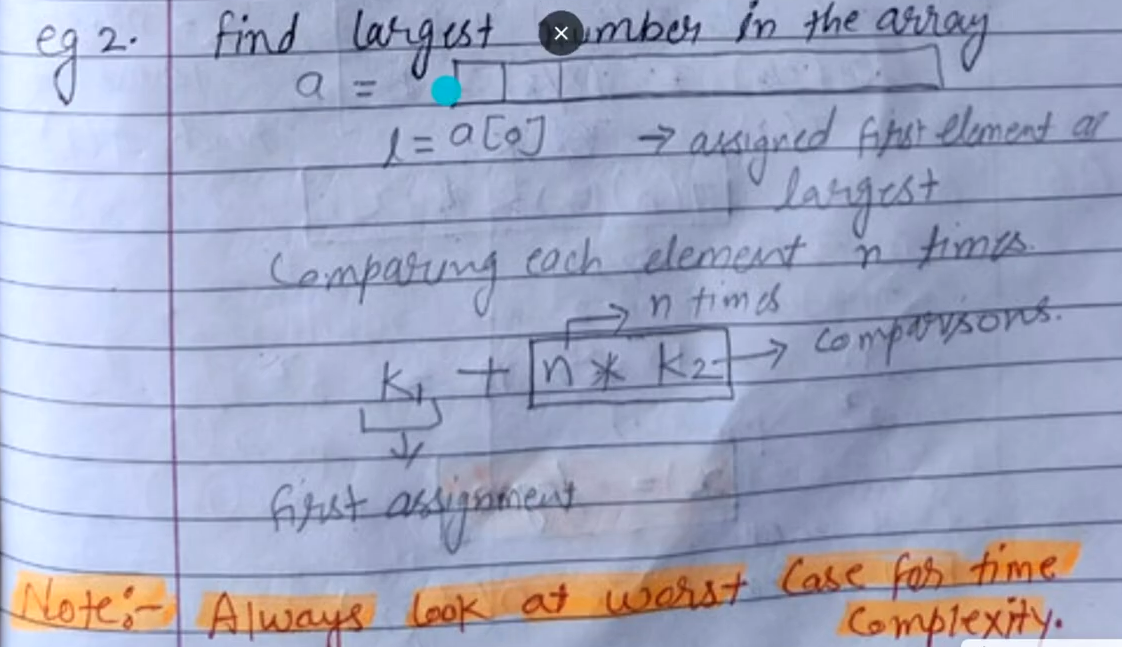 eg 2. find largest number in the array
a =
l = a[0] → assigned first element as
largest
Comparing each element n times.
→ n times
K1 + n * K2 → comparisons.
first assignment
Note:- Always look at worst case for time
complexity.